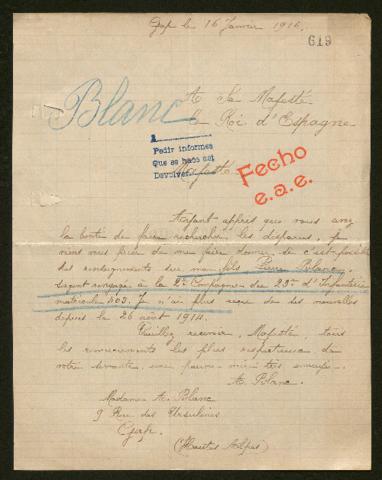 Gap le 16 Janvier 1916.
619
Blanc
A Sa Majesté
le Roi d'Espagne
1
Pedir informes
Que se hado est
Devolver.
Majesté
Fecho
e.a.e.
Ayant appris que vous avez
la bonté de faire rechercher les disparus, je
viens vous prier de me faire donner si c'est possible
des renseignements sur mon fils Pierre Blanc,
sergent engagé à la 2e Compagnie du 23e d'Infanterie
matricule 503. Je n'ai plus reçu de ses nouvelles
depuis le 26 août 1914.
Veuillez recevoir, Majesté, tous
les remerciements les plus respectueux de
votre dévouée, une pauvre mère très ennuyée.
A. Blanc.
Madame A. Blanc
9 Rue des Ursulines
Gap.
(Hautes Alpes)